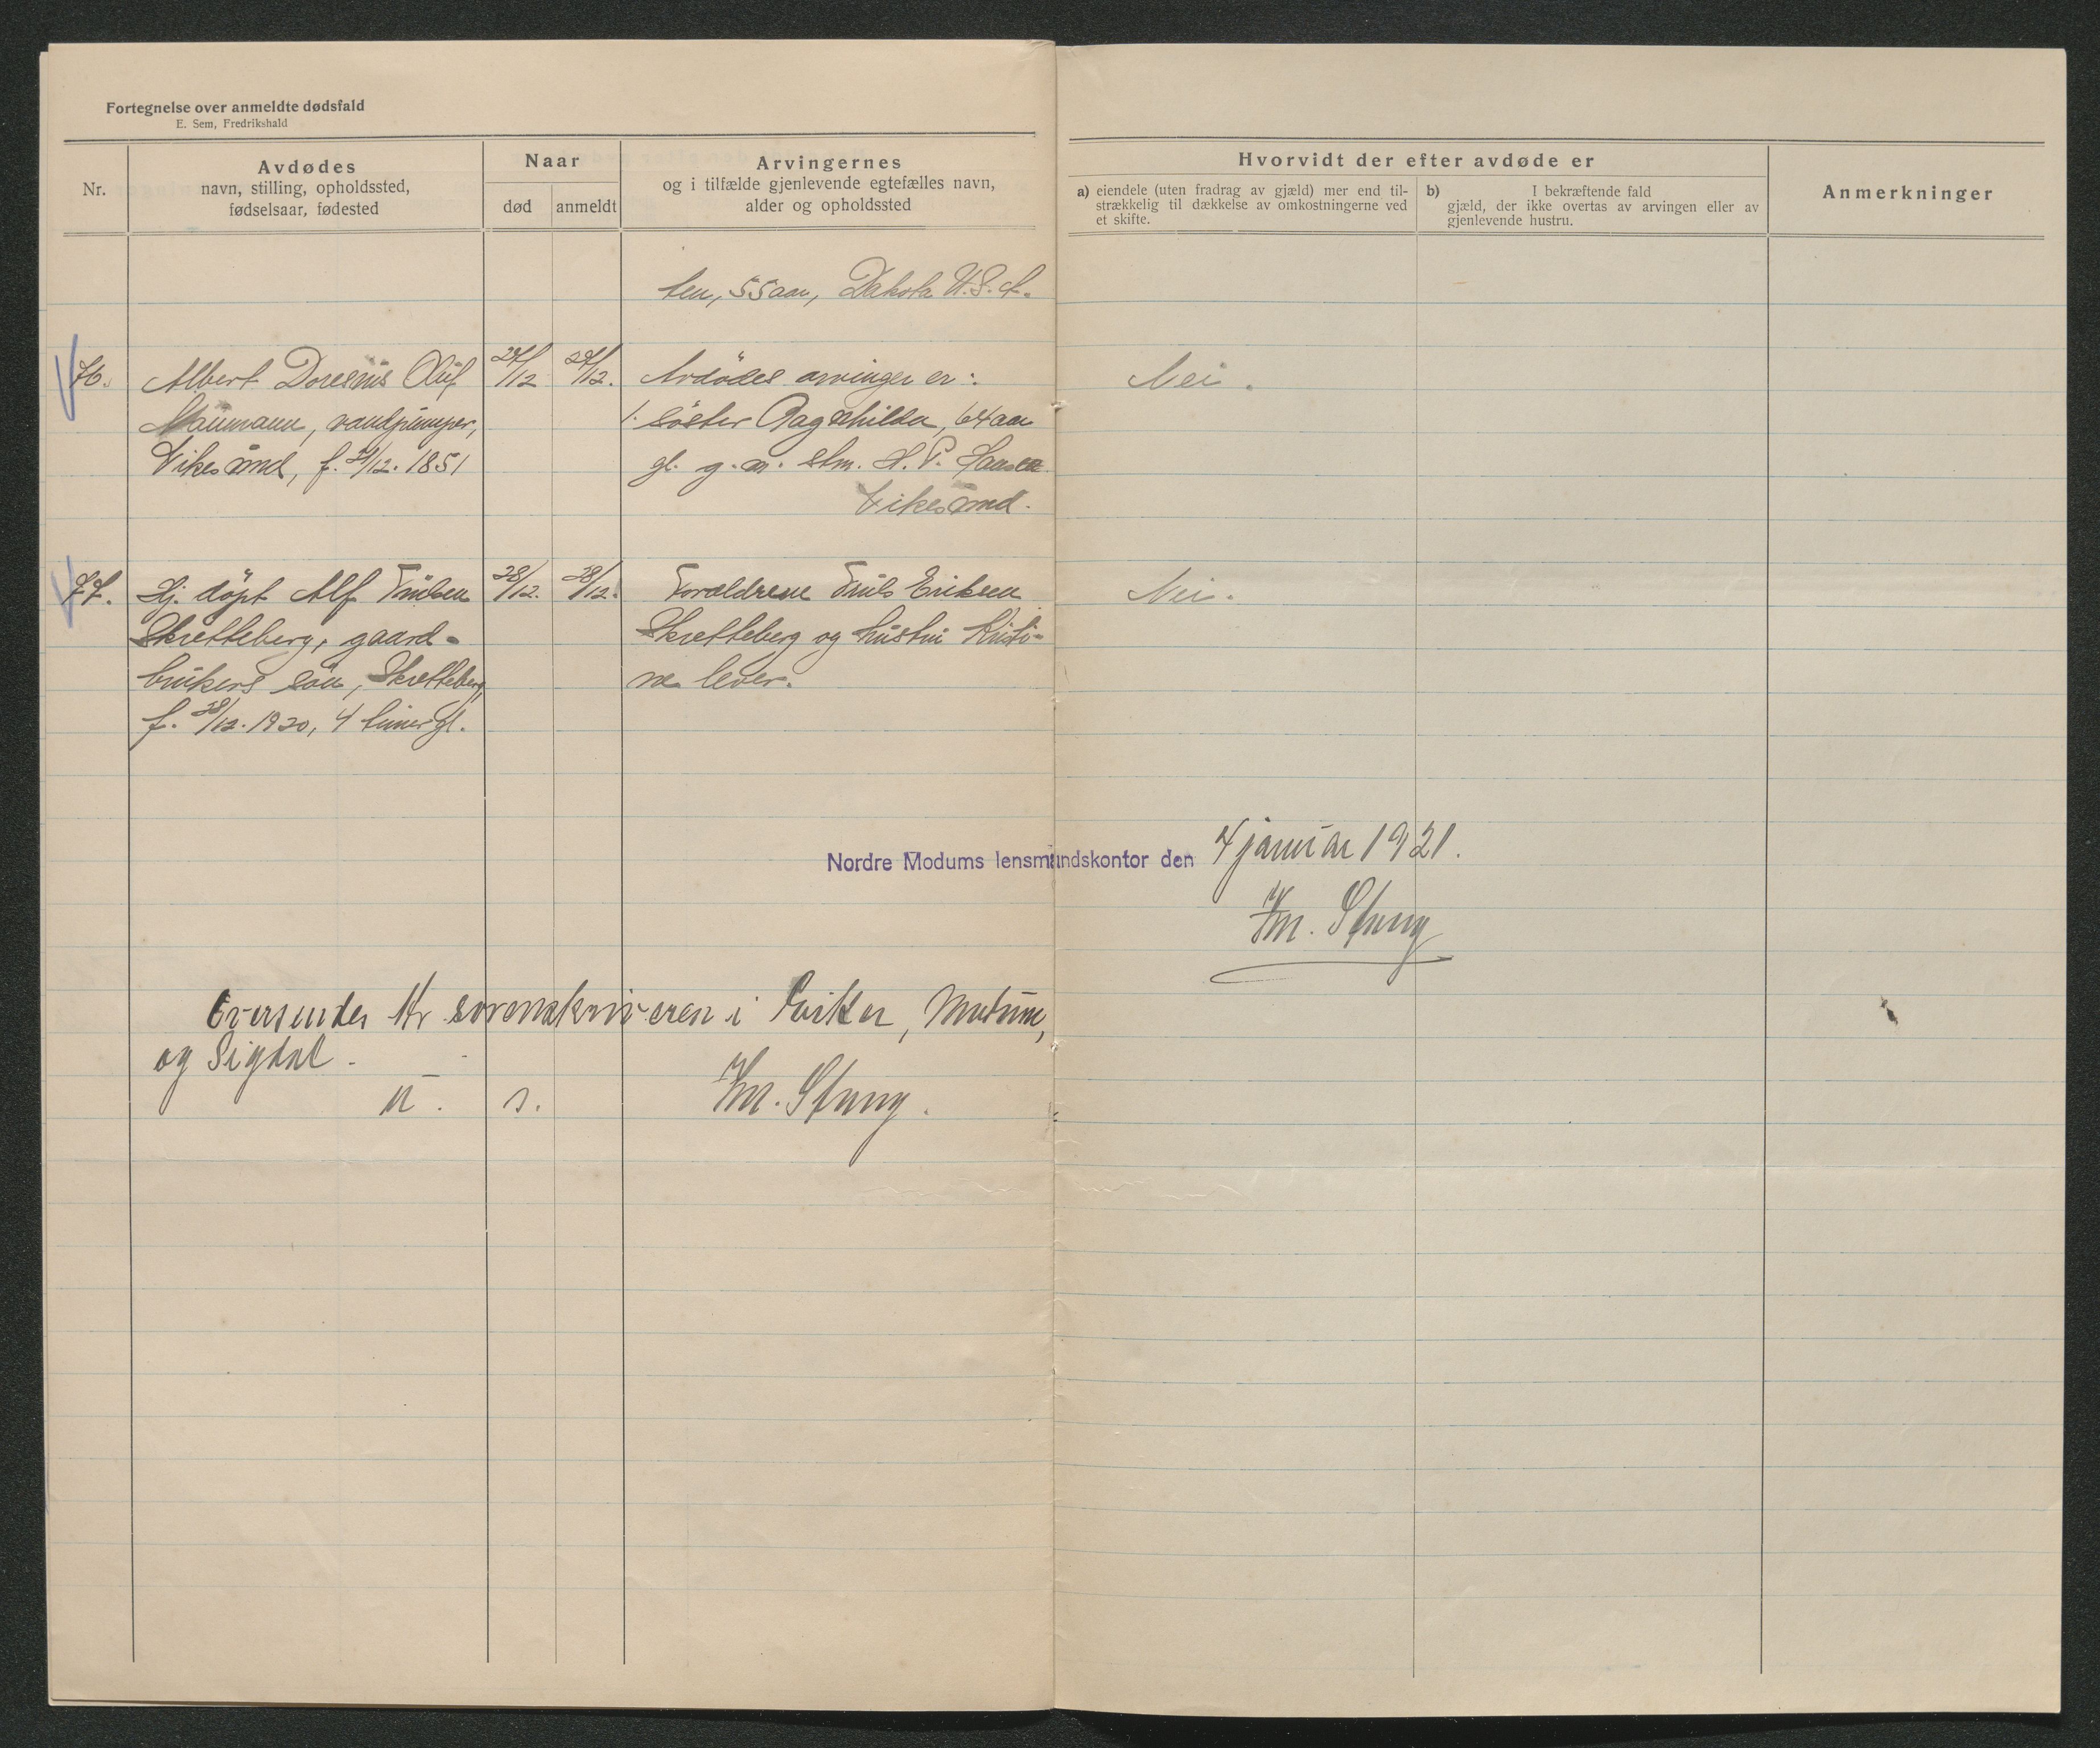 Fortegnelse over anmeldte dødsfald
E. Sem, Fredrikshald
Nr.
Avdødes
navn, stilling, opholdssted,
fødselsaar, fødested
Naar
død
anmeldt
Arvingernes
og i tilfælde gjenlevende egtefælles navn,
alder og opholdssted
Hvorvidt der efter avdøde er
a) eiendele (uten fradrag av gjæld) mer end til-
strækkelig til dækkelse av omkostningerne ved
et skifte.
b) I bekræftende fald
gjæld, der ikke overtas av arvingen eller av
gjenlevende hustru.
Anmerkninger
ten, 55 aar, Dakota U.S.A.
76.
Albert Doresius Oluf
Naumann, vandpumper,
Vikesund, f. /12. 1851
27/12
29/12.
Avdödes arvinger er:
1. söster Ragnhilda, 64 aar
gl. g. m. stm. H. P. Hansen
Vikesund.
Nei.
77.
Hj. döpt Alf Trulsen
Skretteberg, gaard-
brukers sön, Skretteberg,
f. 28/12. 1920, 4 timer gl.
28/12.
28/12.
Forældrene Truls Eriksen
Skretteberg og hustru Kristi-
ne lever.
Nei.
Nordre Modums lensmandskontor den 4 januar 1921.
Oversendes Hr sorenskriveren i Eiker, Modum,
og Sigdal.
u. s.